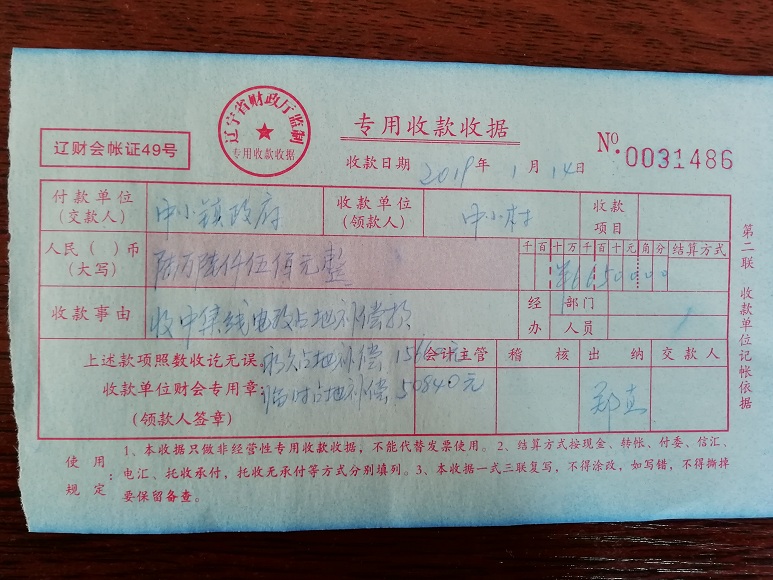 辽宁省财政厅监制
专用收款收据
辽财会帐证49号
专用收款收据
收款日期 2019年1月14日
№.0031486
付款单位
(交款人)
中小镇政府
收款单位
(领款人)
中小村
收款
项目
人民( )币
(大写)
陆万陆仟伍佰元整
千百十万千百十元角分
结算方式
¥6650000
收款事由
收中集线电改占地补偿款
经办
部门
人员
上述款项照数收讫无误
永久占地补偿 15660元
会计主管
稽 核
出 纳
交款人
收款单位财会专用章:
临时占地补偿 50840元
(领款人签章)
郑直
第二联 收款单位记帐依据
使用规定:
1、本收据只做非经营性专用收款收据,不能代替发票使用。2、结算方式按现金、转帐、付委、信汇、
电汇、托收承付,托收无承付等方式分别填列。3、本收据一式三联复写,不得涂改,如写错,不得撕掉
要保留备查。